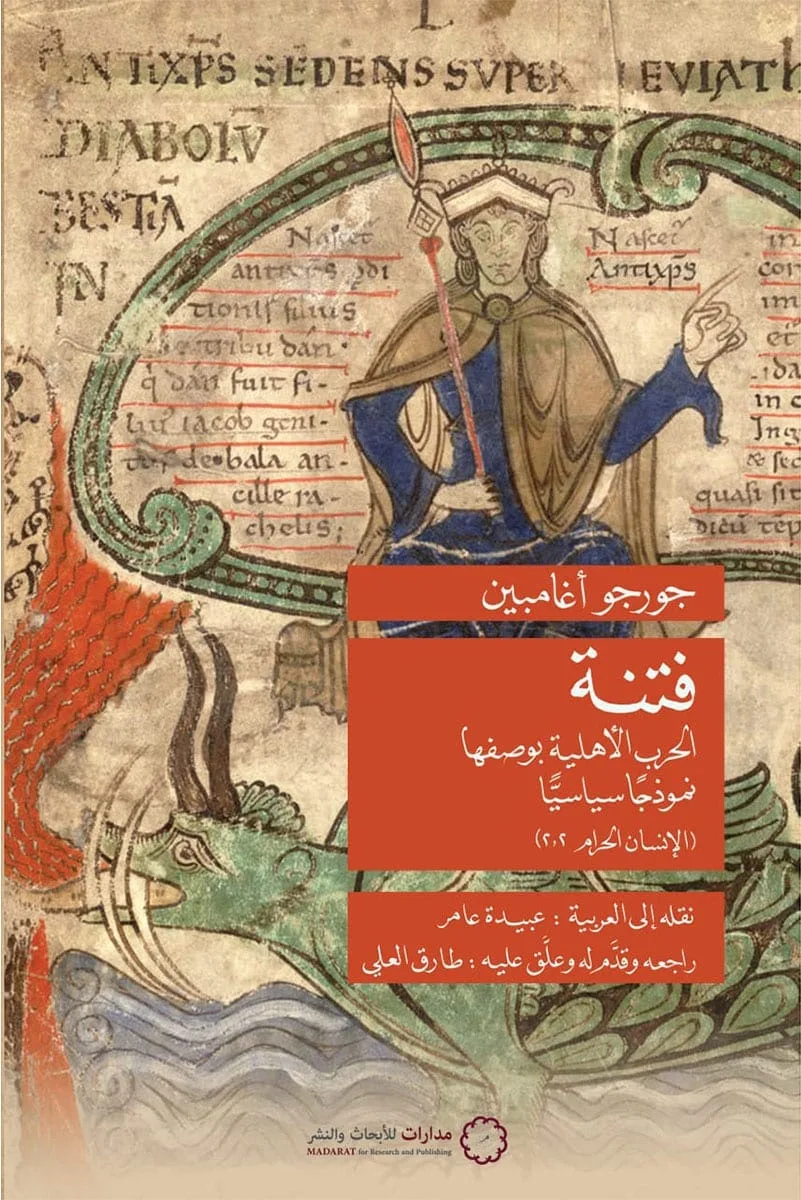 L
ANTIXP̄S SEDENS SVPER LEVIATH
DIABOLV̄
BESTIĀ
IN
Nascet
antixp̄s p̄di
tionis filius
de tribu dan·
q̇ dan fuit fi-
liuſ iacob geni-
tuſ de bala an-
cille ra-
chelis;
Nascet᷑
Antixp̄s
in
con
im
et
·da
in c
Ing
& sec
quasi sit
dicū tēp
جورجو أغامبين
فتنة
الحرب الأهلية بوصفها
نموذجًا سياسيًّا
(الإنسان الحرام ٢،٢)
نقله إلى العربية : عبيدة عامر
راجعه وقدَّم له وعلَّق عليه : طارق العلي
مدارات للأبحاث والنشر
MADARAT for Research and Publishing